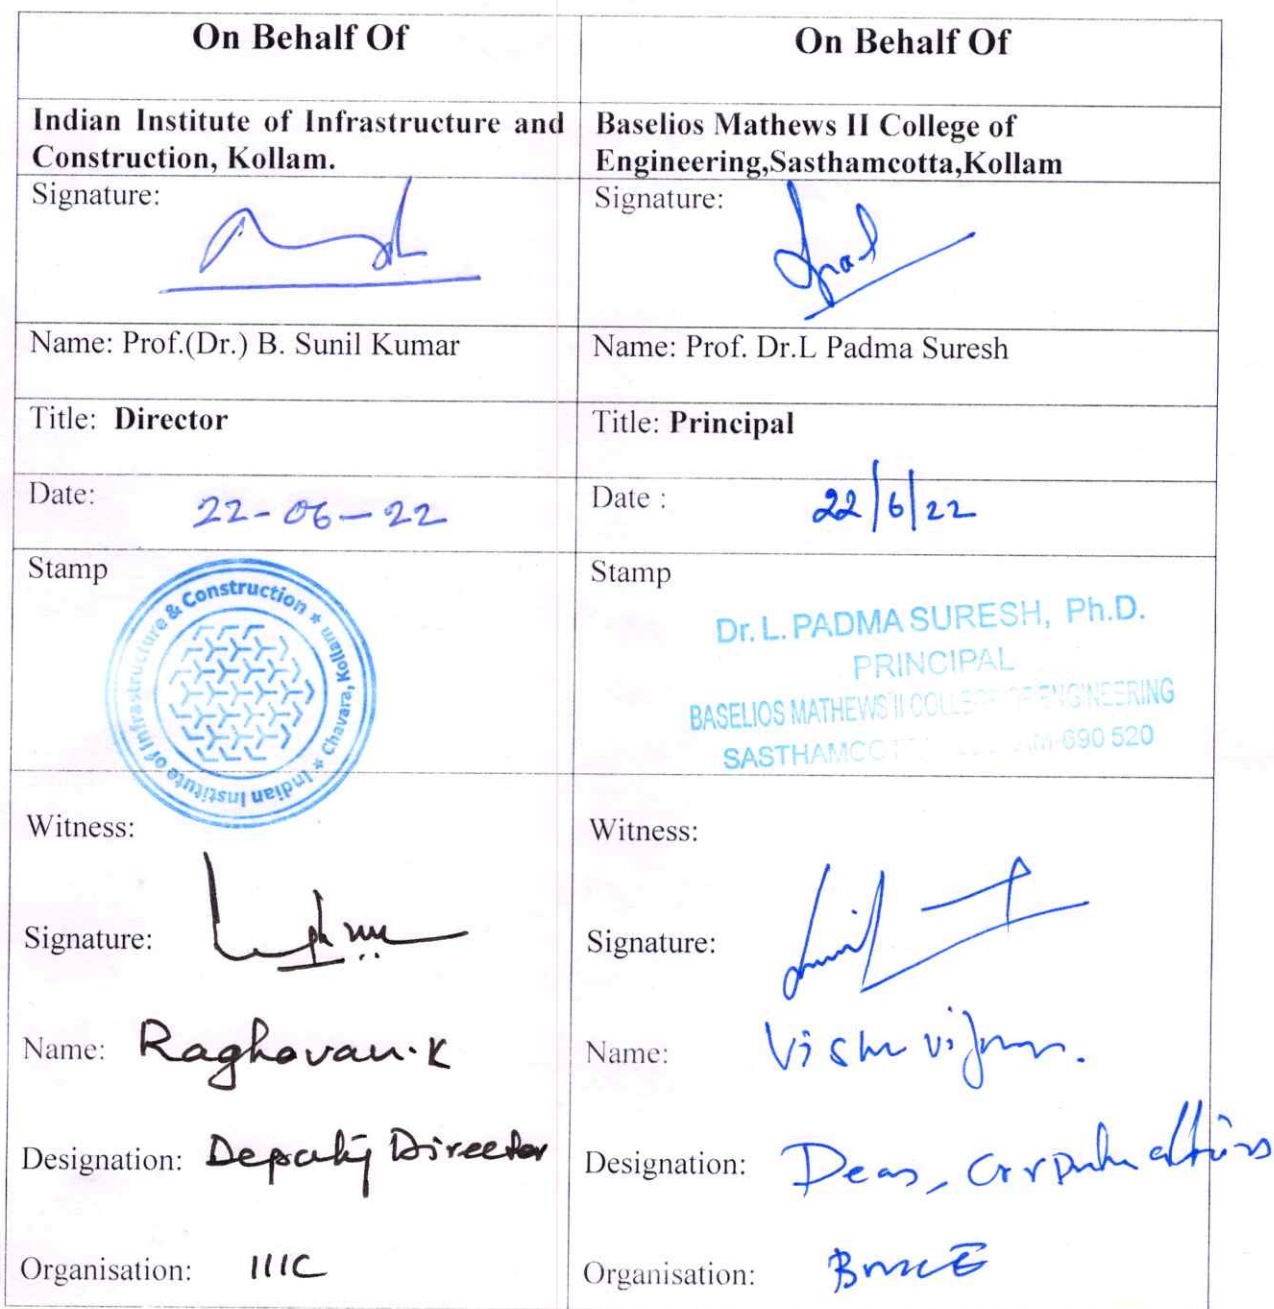 On Behalf Of
On Behalf Of
Indian Institute of Infrastructure and
Construction, Kollam.
Baselios Mathews II College of
Engineering,Sasthamcotta,Kollam
Signature:
Signature:
Name: Prof.(Dr.) B. Sunil Kumar
Name: Prof. Dr.L Padma Suresh
Title: Director
Title: Principal
Date: 22-06-22
Date : 22/6/22
Stamp
Indian Institute of Infrastructure & Construction * Chavara, Kollam *
Stamp
Dr. L. PADMA SURESH, Ph.D.
PRINCIPAL
BASELIOS MATHEWS II COLLEGE OF ENGINEERING
690 520
Witness:
Signature:
Name: Raghavan.K
Designation: Deputy Director
Organisation: IIIC
Witness:
Signature:
Name:
Designation: Dean, Corporate affairs
Organisation: BMCE